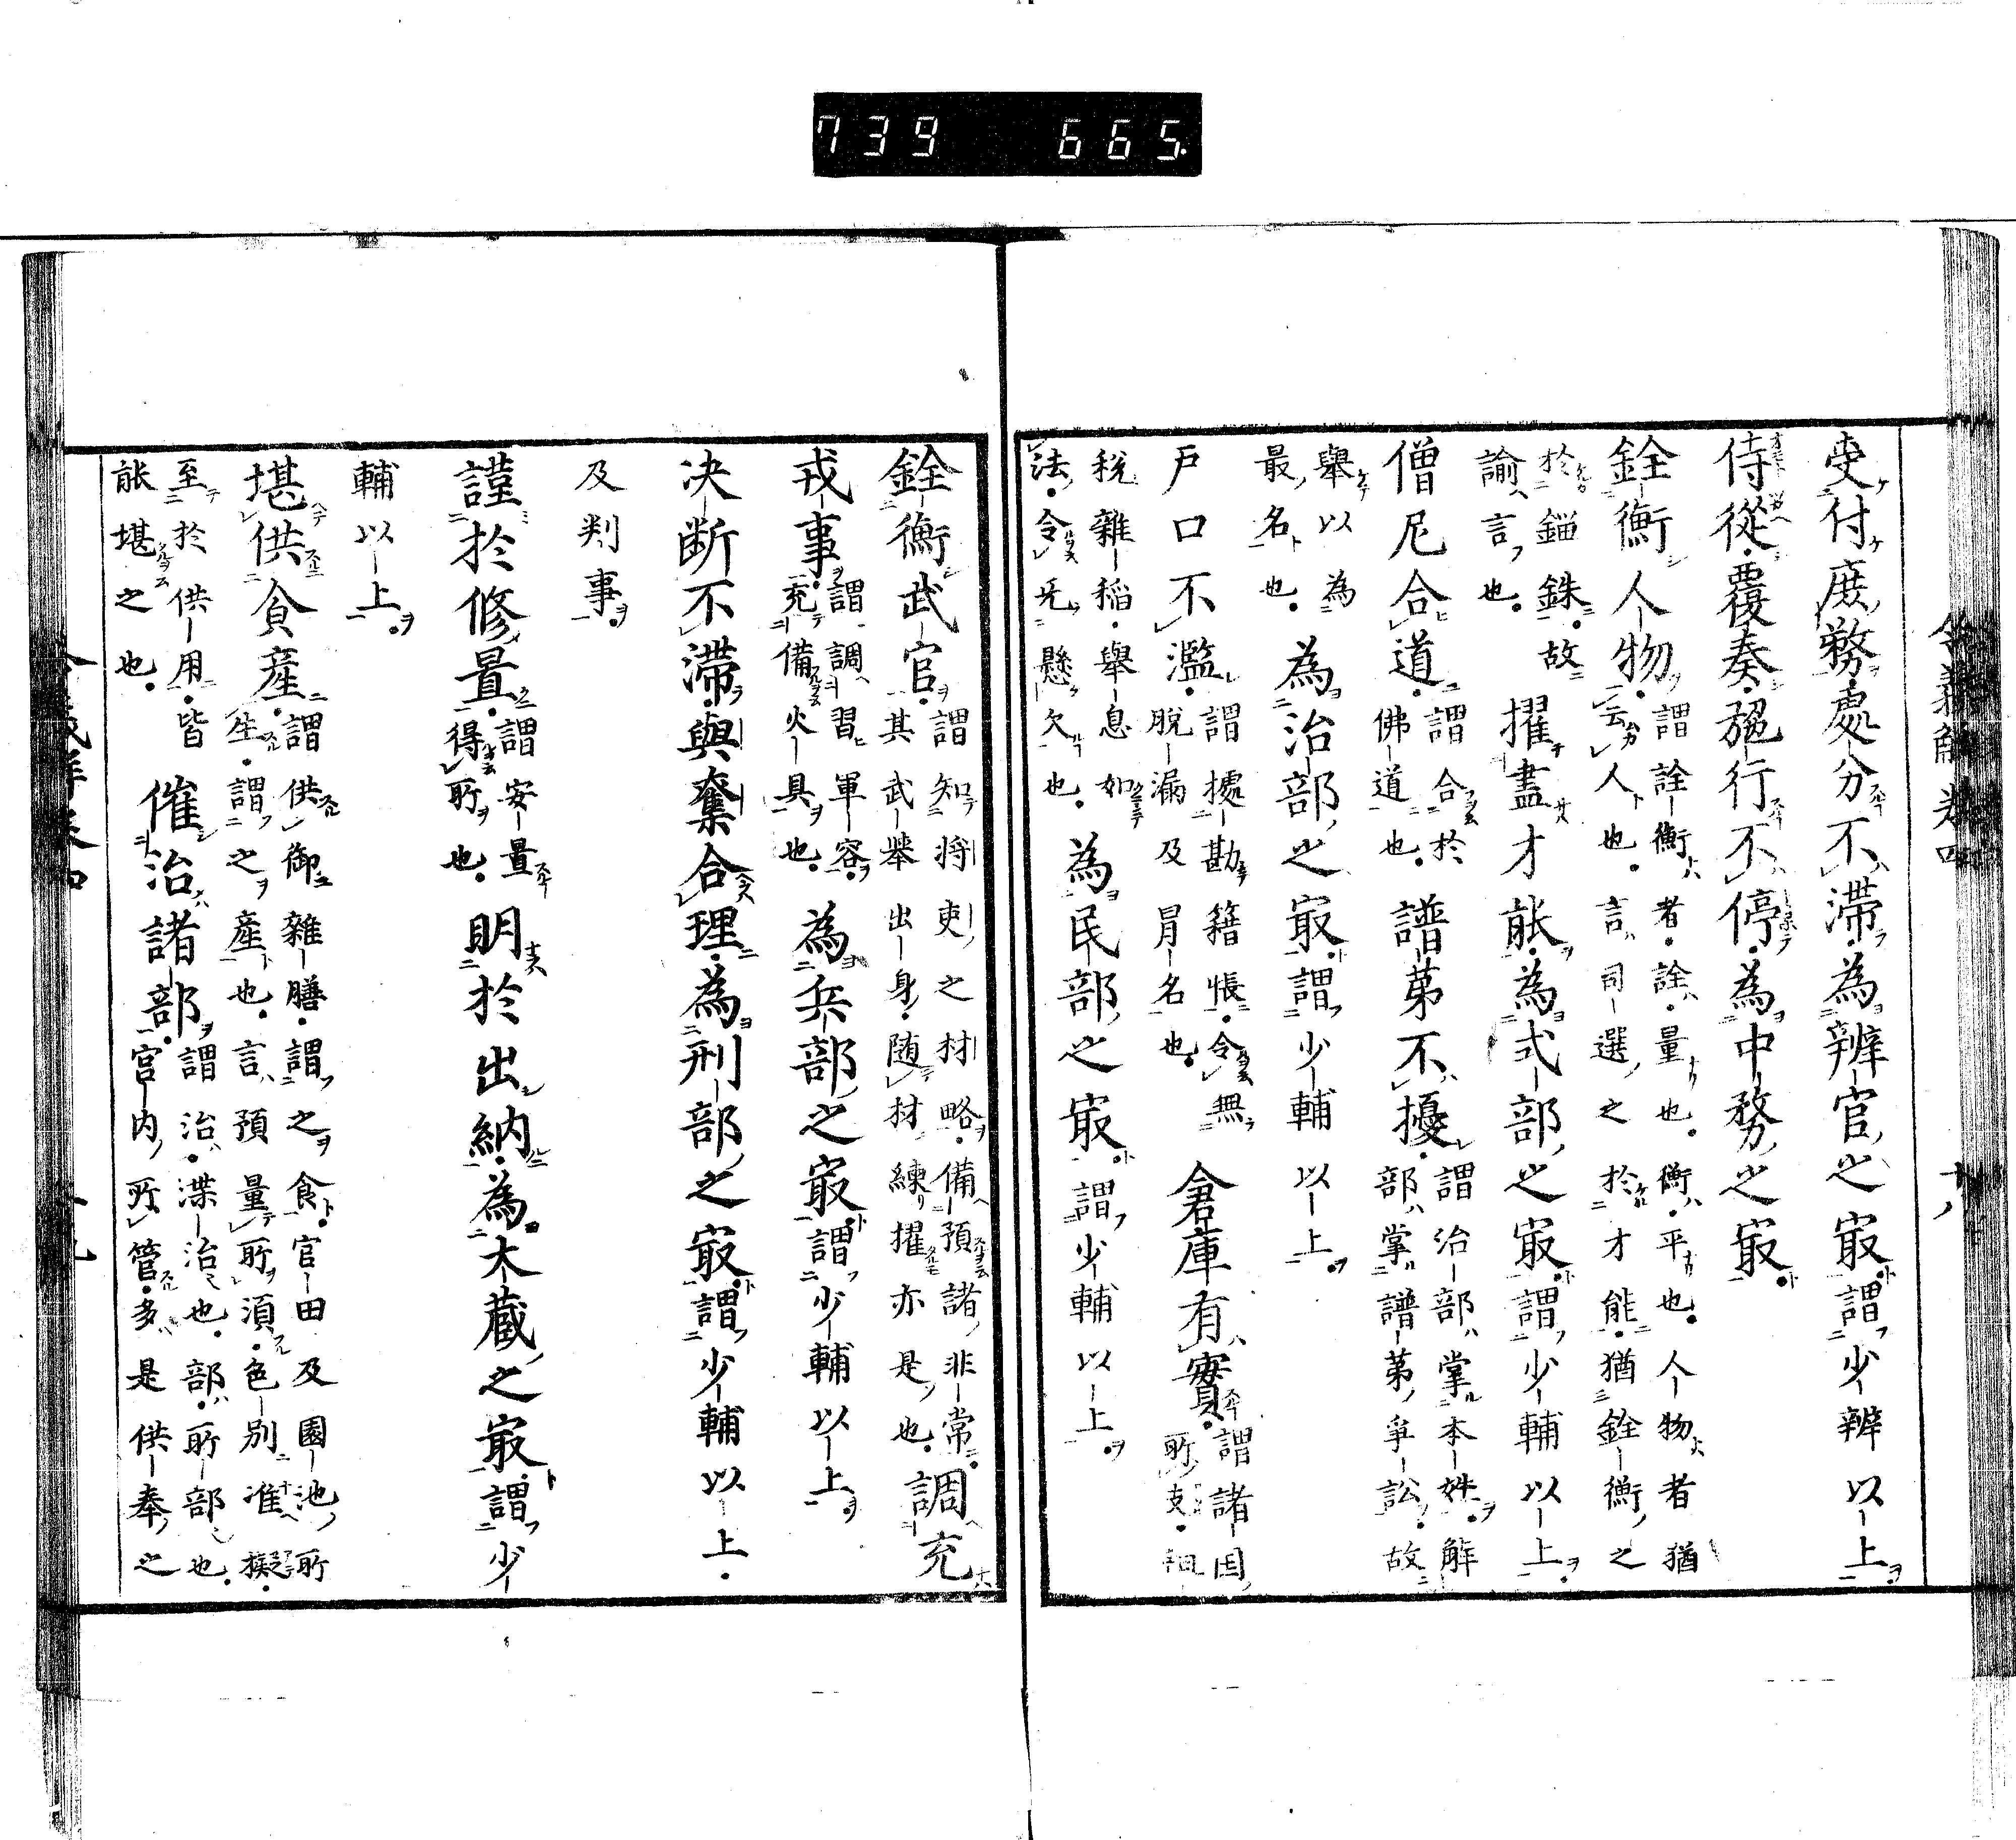 739 665
令義解 卷四 十八
受付庶務。處分不滯。為辨官之㝡。謂少辨以上。
侍從覆奏。施行不停。為中務之㝡。
銓衡人物。謂詮衡者。詮。量也。衡。平也。人物者猶
云人也。言司選之於才能。猶銓衡之
於錙銖。故
諭言也。擢盡才能。為式部之㝡。謂少輔以上。
僧尼合道。謂合於
佛道也。譜第不擾。謂治部掌本姓。解
部掌譜第爭訟。故
舉以為
最名也。為治部之㝡。謂少輔以上。
戶口不濫。謂據勘籍帳。令無
脫漏及冒名也。倉庫有實。謂諸國
所支。租
税雜稲。舉息如
法。令旡懸欠也。為民部之㝡。謂少輔以上。
銓衡武官。謂知將吏之材略。備預諸非常。
其武舉出身。随材練擢亦是也。調充
戎事。謂調習軍容。
充備火具也。為兵部之㝡。謂少輔以上。
決断不滯。與奪合理。為刑部之㝡。謂少輔以上。
及判事。
謹於修置。謂安置
得所也。明於出納。為大蔵之㝡。謂少
輔以上。
堪供食産。謂供御雜膳。謂之食。官田及園池所
生。謂之産也。言預量所須。色別准擬。
至於供用。皆
能堪之也。催治諸部。謂治。渫治也。部。所部也。
宮内所管。多是供奉之